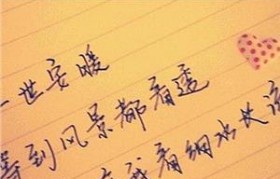 一世安暖
等到风景都看透
我看细水长